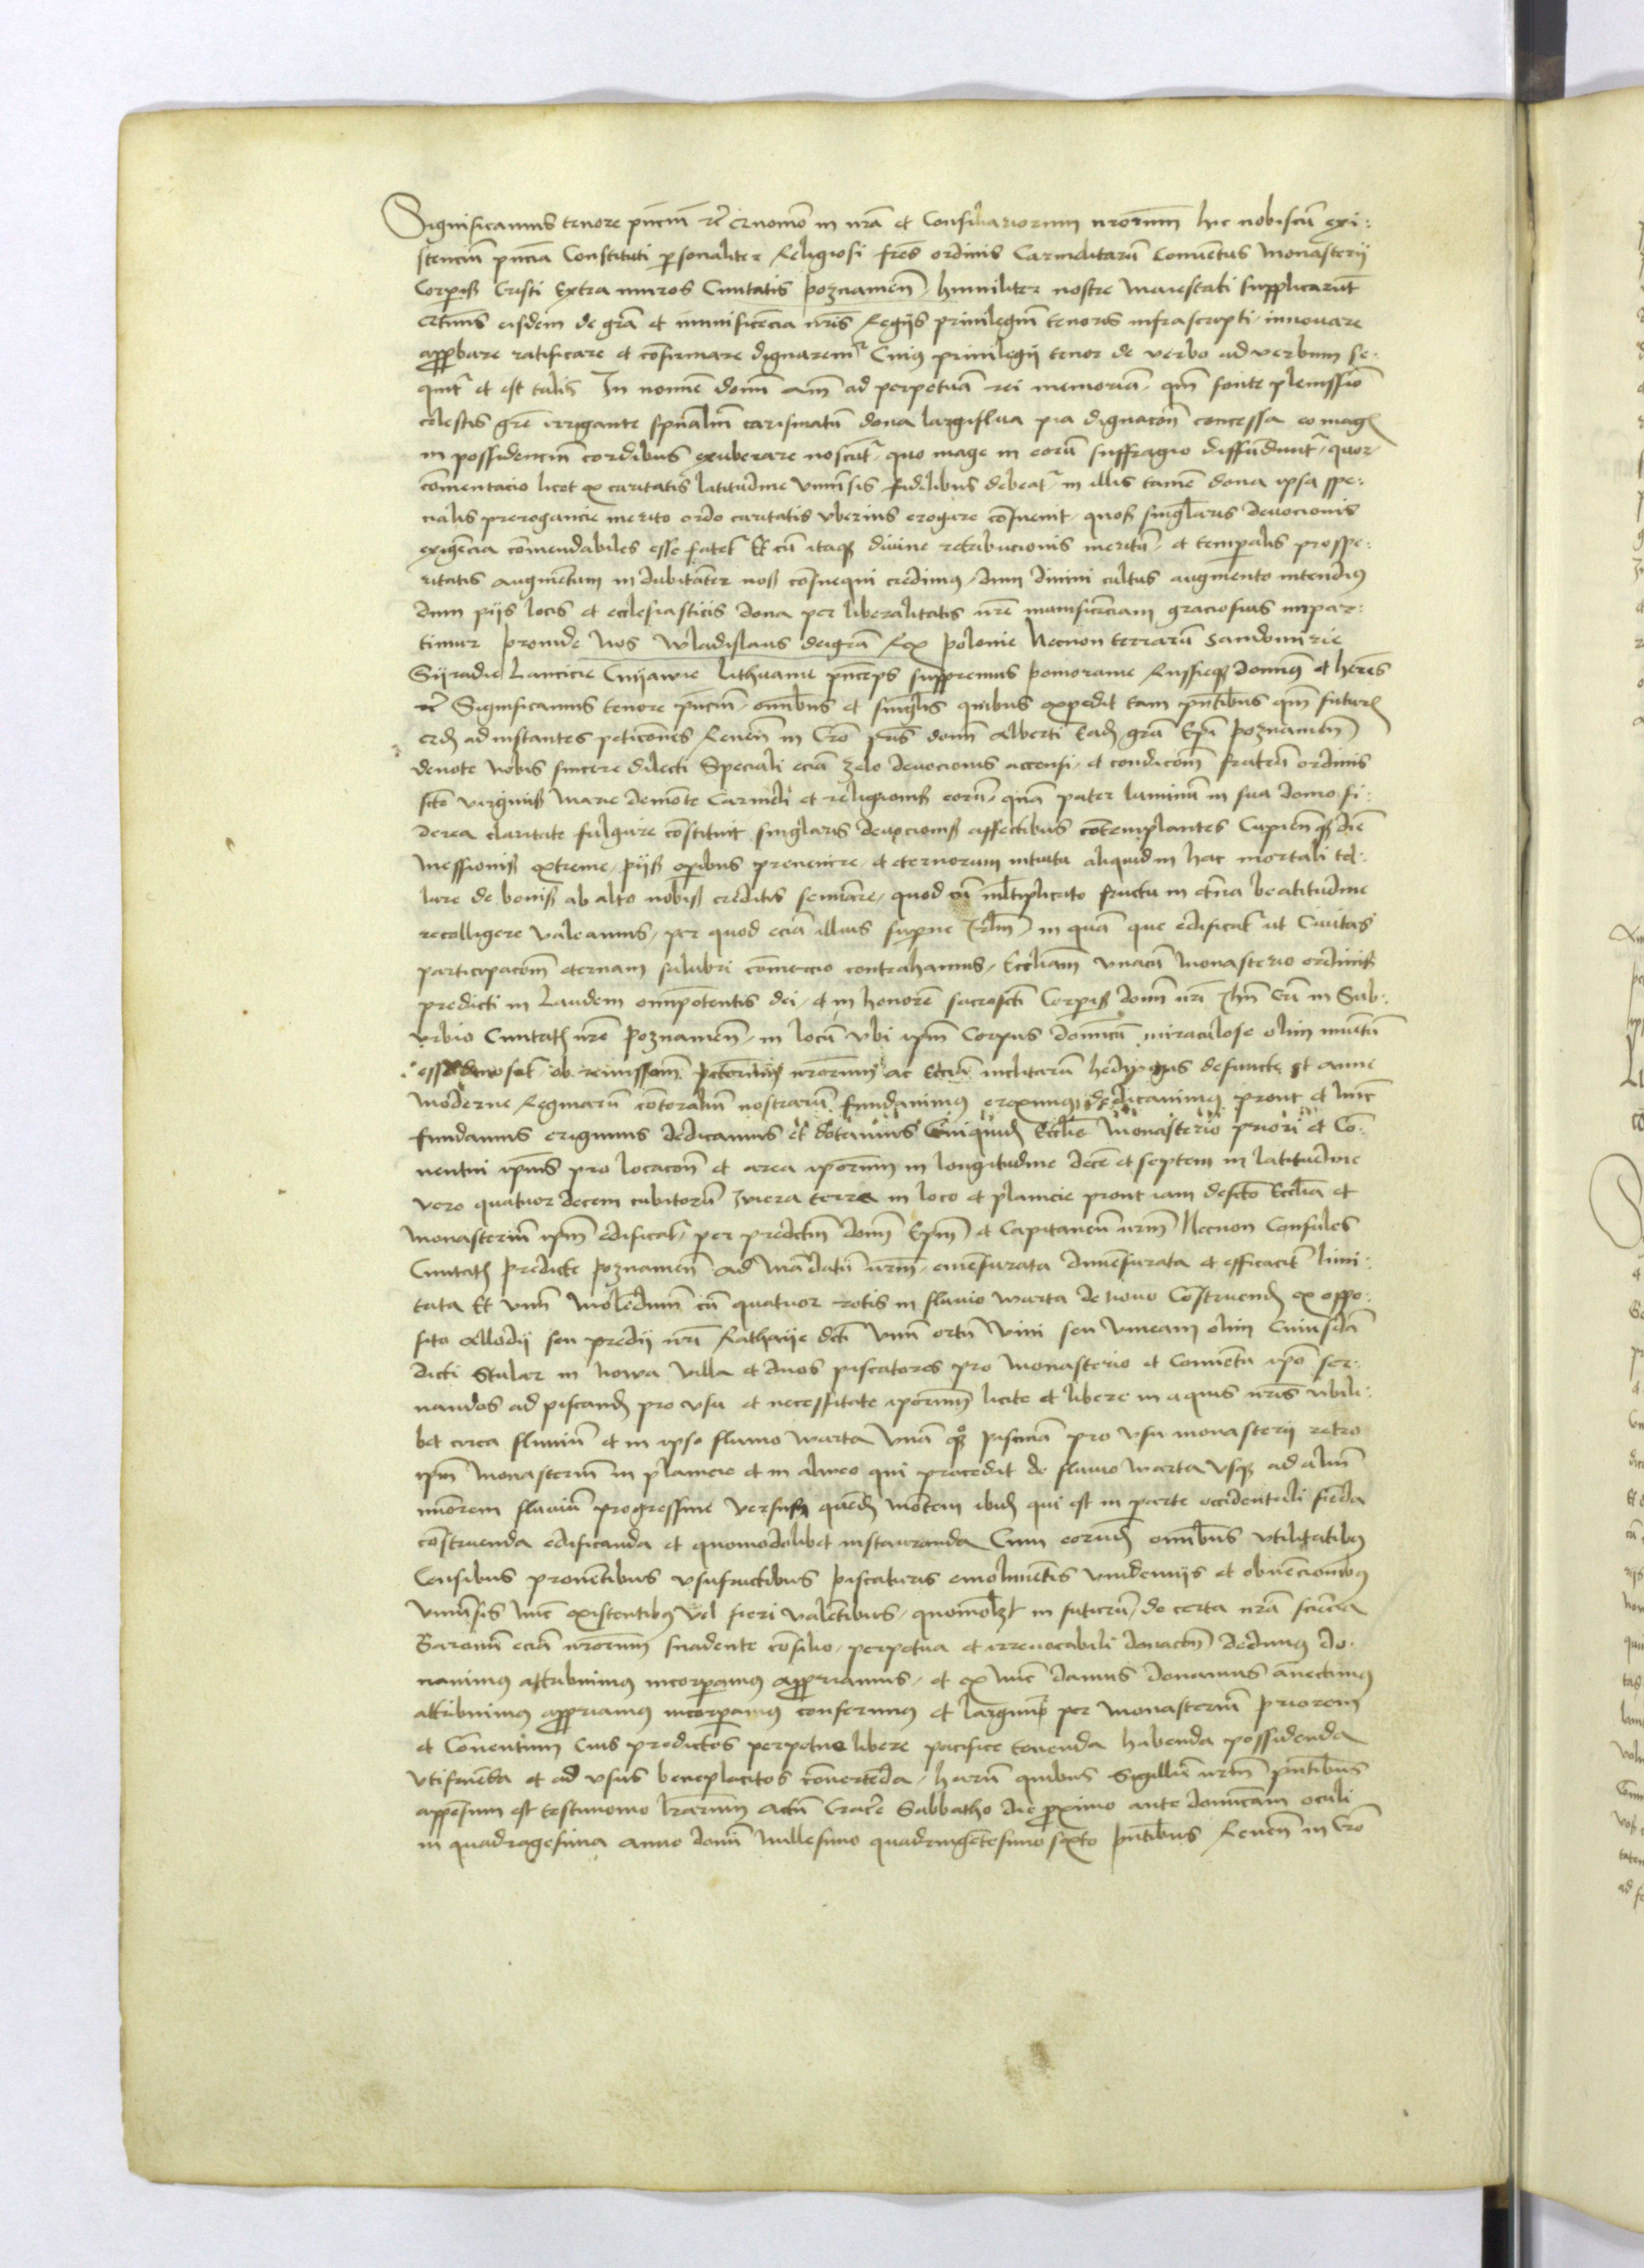 Significamus tenore pñcium rc̃ Quomo in nrã et Consiliariorum nrorum hic nobiscũ exi:
stenciũ pñcia Constituti personaliter Religiosi fres ordinis Carmelitarũ Conuentus Monasterij
Corporis Cristi Extra muros Ciuitatis poznamen̄ humiliter nostre Maiestati supplicarũt
eisdem de gr̃a et munificẽcia nr̃is Regijs priuilegiũ tenoris infrascripti innouare
approbare ratificare et cõfirmare dignaremr̃ Cuius priuilegij tenor de verbo ad verbum se:
quitr̃ et est talis In nomĩe domĩ am̃ ad perpetuã rei memoriã qm̃ fonte plenissĩo
celestis gr̃e irrigante carismatũ dona largiflua pia dignacõn concessa eo mag
in possidenciũ cordibus exuberare noscũtr̃ quo mage in eorũ suffragio diffundũtr̃ quor
cõmentacio licet ex caritatis latitudine vniũsis fidelibus debeatr̃ in illis tamẽ dona ipsa spe:
cialis prerogancie merito ordo caritatis vberius erogare cõsueuit quos singlaris deuocionis
exigẽcia cõmendabiles esse fatetr̃ Et cũ itaq diuine retribucionis meritũ et temporalis prospe:
ritatis augmẽtum indubitãter nos cõsequi credimus dum diuini cultus augmẽto intendiũs
dum pijs locis et ecclesiasticis dona per liberalitatis nr̃e munificẽciam graciosius impar:
timur proinde Nos Wladislaus deigr̃a Rex polonie Necnon terrarũ Sandomirie
Syradie Lancicie Cuyawie lithuanie pñceps suppremus pomoranie Russieq dominus et heres
rc̃ Significamus tenore pñciũ omnibus et singlis quibus expedit tam pñtibus qm̃ futuris
ad instantes peticões Reueñ in Cr̃o pris domĩ Alberti Eadẽ gr̃a Epĩ poznamen̄
deuote Nobis sincere dilecti Speciali eciã zelo deuocionis accensi et condicõm fratrũ ordinis
scte virginis Marie demõte Carmeli et religionis eorũ quã pater luminũ in sua domo si:
derea claritate fulgure cõstituit singlaris deuocionis affectibus cõtemplantes Cupien̄ q̃ diẽ
messionis extreme pijs operibus preuenire et eternorum intuitu aliquid in hac mortali tel:
lure de bonis ab alto nobis creditis seminare quod cũ multiplicato fructu in etrna beatitudine
recolligere valeamus per quod eciã illius superne Irlm̃ in quã que edificatr̃ ut Ciuitas
participacõm eternam salubri cõmercio contrahamus Eccliam vnacũ Monasterio ordinis
predicti in Laudem omnipotentis dei et in honorẽ sacroscti Corporis domĩ nrĩ Ihũ Crĩ in Sub:
vrbio Ciuitatis nr̃e poznamen̄ in locũ vbi ipm̃ Corpus domĩcũ miraculose olim inuẽtũ
esse dinoscitr̃ ob remissõm nrorum ac Eciã inclitarũ hedwigis defuncte et anne
moderne Reginarũ cõtoraliũ nostrarũ fundauimus ereximus dedicauimus prout et hinc
fundamus erigimus dedicamus et dotamus Cuiquidẽ Ecclie Monasterio priori et Co:
nentui ipius pro locacõn et area iporum in longitudine decẽ et septem in latitudine
vero quatuor decem cubitorũ terra in loco et planicie prout iam descto Ecclia et
Monasteriũ ipm̃ edificatr̃ per predictũ domĩ Epm̃ et Capitaneũ nrm̃ Necnon Consules
Ciuitatis predicte poznamen̄ ad mãdatũ nrm̃ emẽsurata dimẽsurata et efficacitr̃ limi:
tata Et vnũ Molendinũ cũ quatuor rotis in fluuio warta de nouo Construendũ ex oppo:
sito Allodij seu predij nrĩ dctĩ vnũ ortũ vini seu vineam olim cuiusdã
dicti Stuler in Nowa villa et duos piscatores pro Monasterio et Conuẽtu ipo ser:
uandos ad piscandũ pro vsu et necessitate iporum licite et libere in aquis nr̃is vbili:
bet circa fluuiũ et in ipso fluuio Warta vnã q̃ piscinã pro vsu monasterij retro
ipm̃ Monasteriũ in planicie et in alueo qui procedit de fluuio Warta vsq ad aliũ
minorem fluuiũ progressiue versus quendã Montem ibidẽ qui est in parte occidentali fiẽda
cõstruenda edificanda et quomodolibet instauranda Cum eorundẽ omnibus vtilitatibus
Censibus prouẽtibus vsufructibus piscaturis emolimẽtis vindemijs et obuẽcionibus
vniũsis nũc existentibus vel fieri valẽtibus quomolzt in futurũ de certa nr̃a sciẽcia
Baronũ eciã nrorum suadente cõsilio perpetua et irreuocabili donacõn dedimus do:
nauimus attribuimus incorporamus appropriamus et ex nũc damus donamus anectimus
attribuimus appropriamus incorporamus conferimus et largimr̃ per Monasteriũ priorem
et Conuentum eius predictos perpetue libere pacifice tenenda habenda possidenda
vtifruẽda et ad vsus beneplacitos cõuertẽda harũ quibus Sigillũ nrm̃ pñtibus
appensum est testimonio lr̃arum actũ Sabbatho die proximo ante domĩcam oculi
in quadragesima anno domĩ Millesimo quadringẽtesimo sexto pñtibus Reueñ in Cr̃o